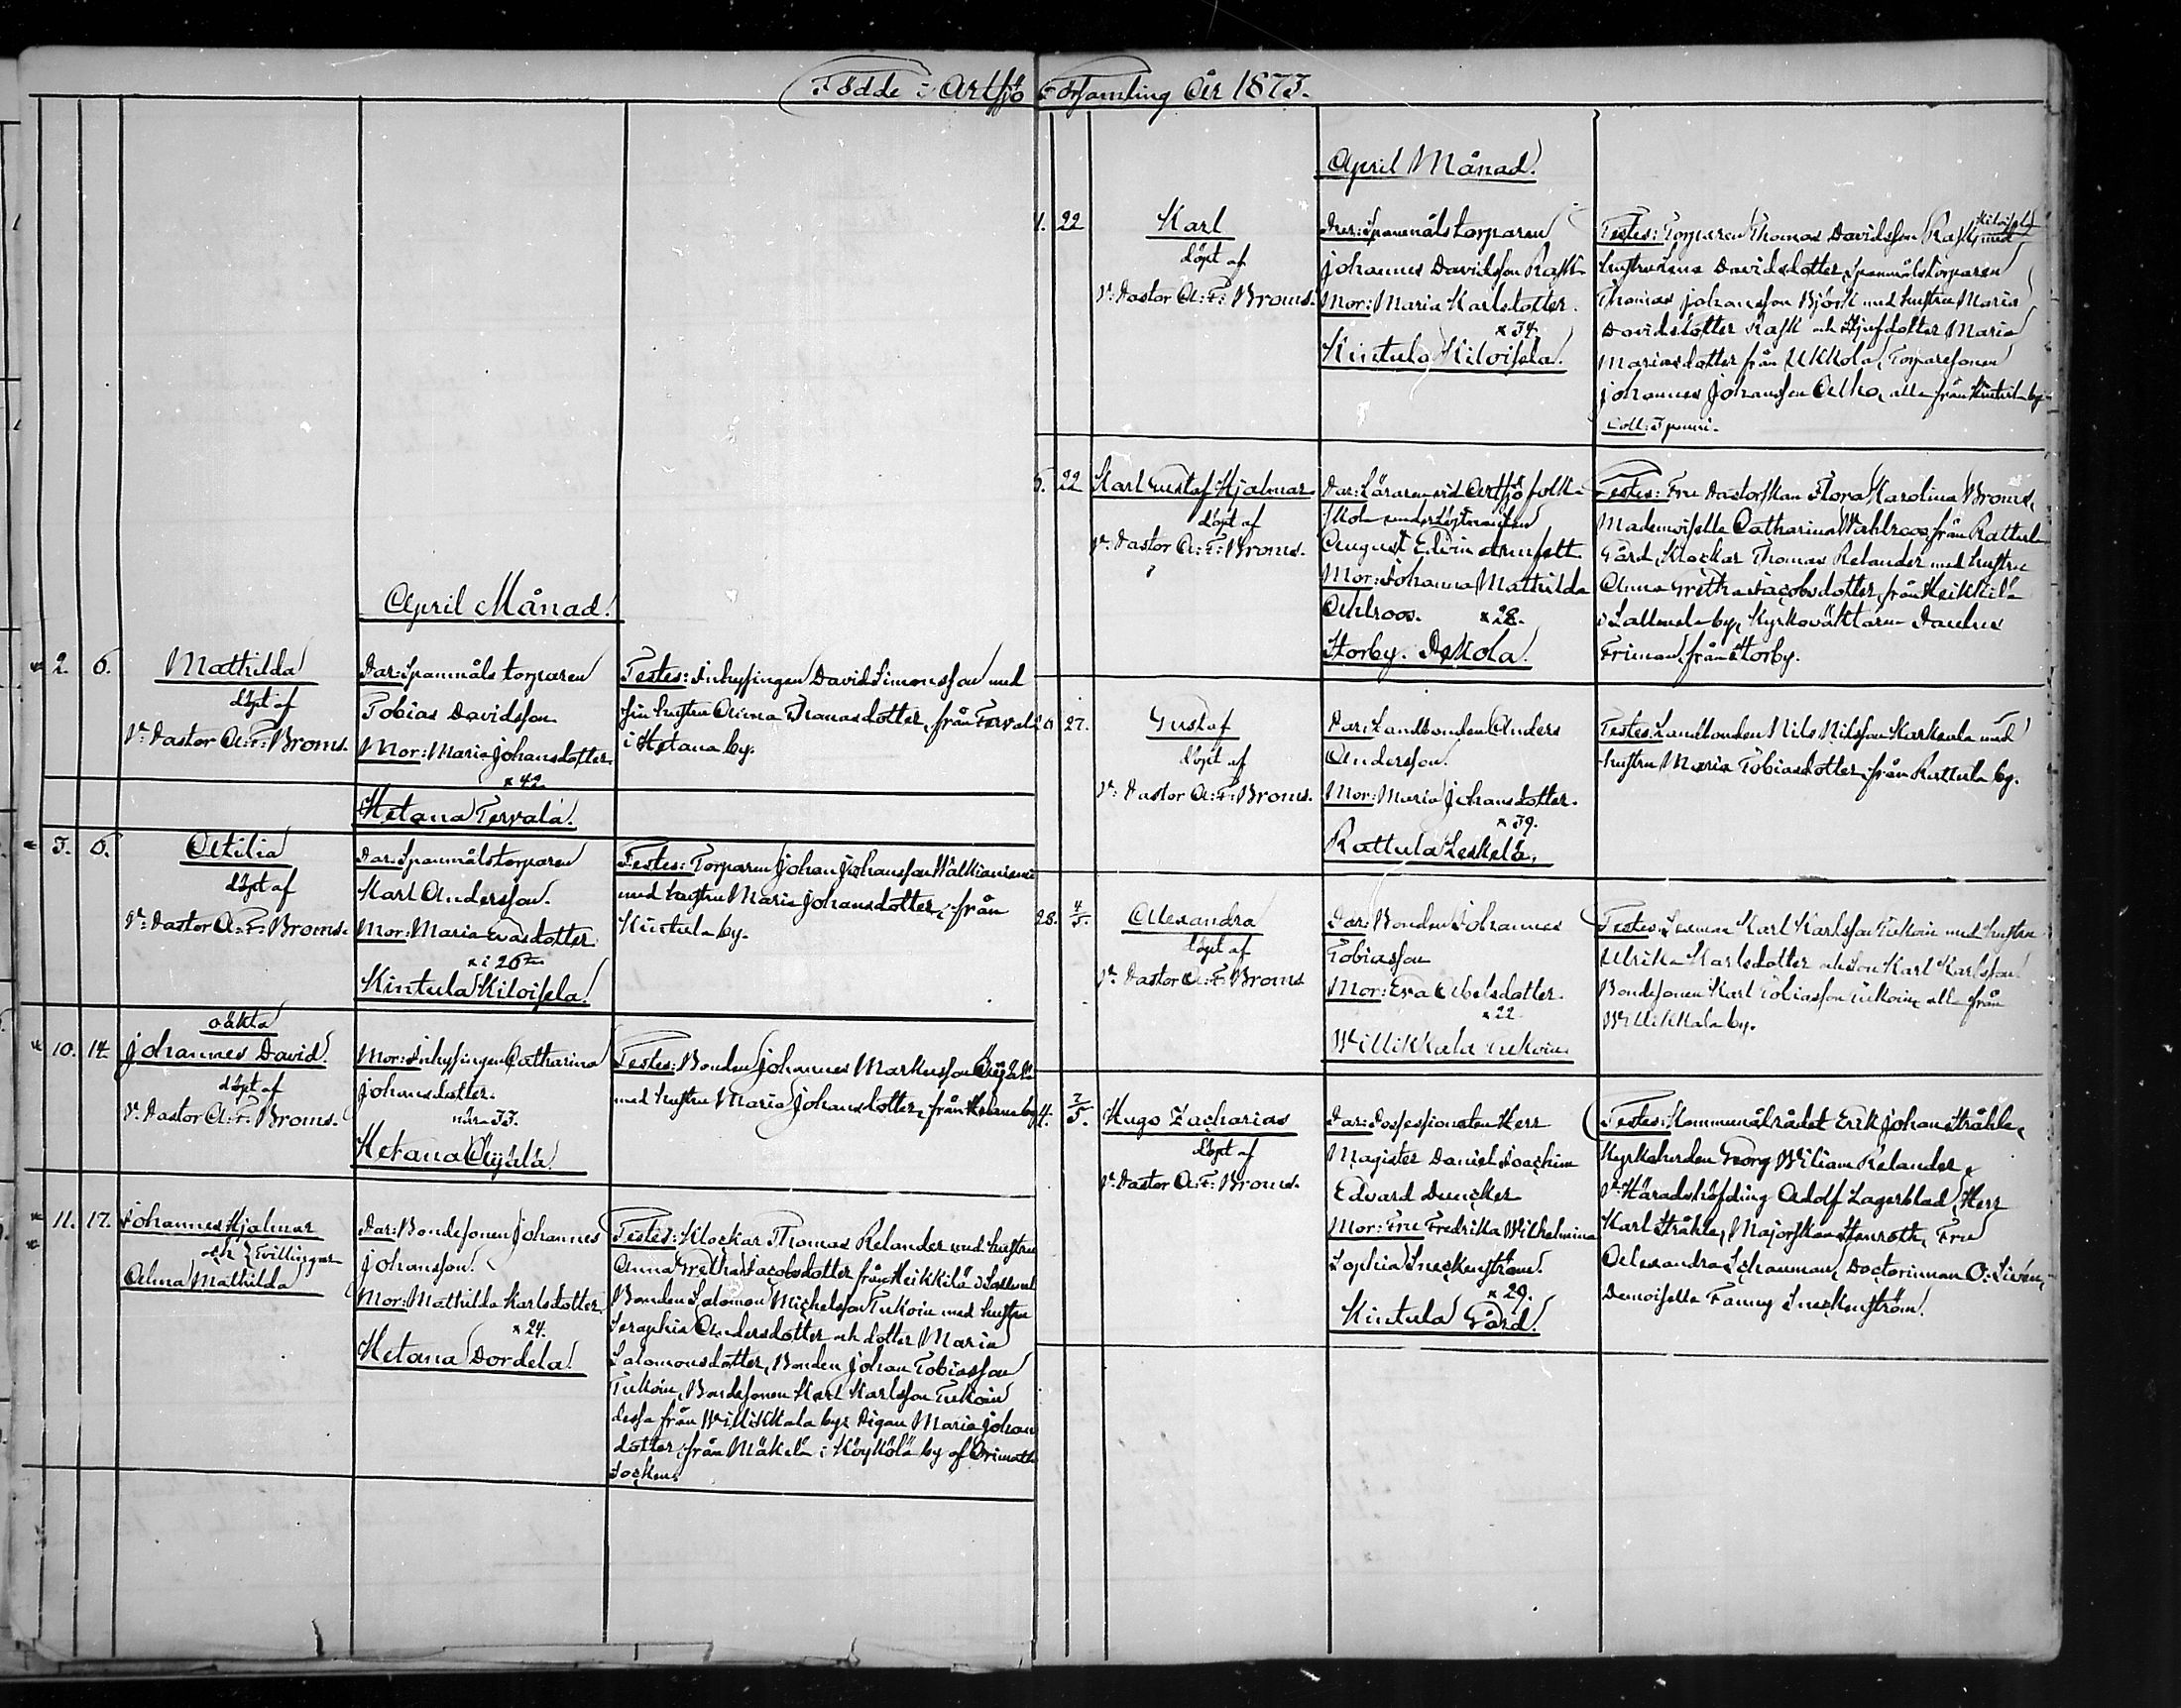 Födde i Artsjö Församling År 1873.
April Månad.
2. 6. Mathilda
döpt af
V. Pastor A. F. Broms.
Par: Spanmåls torparen
Tobias Davidsson
Mor: Maria Johansdotter
x 42
Hetana Tervala.
Testes: Inhysingen David Simonsson med
sin hustru Anna Thomasdotter, från Tervala
i Hetana by.
3. 6. Otilia
döpt af
V. Pastor A. F. Broms.
Par: Spanmålstorparen
Karl Andersson.
Mor: Maria Evasdotter
x i 26
Kintula Kiloisela.
Testes: Torparen Johan Johansson Walkianiemi
med hustru Maria Johansdotter, från
Kintula by.
10. 14. oäkta
Johannes David.
döpt af
V. Pastor A. F. Broms.
Mor: Inhysingen Catharina
Johansdotter.
33.
Hetana Äyälä
Testes: Bonden Johannes Markusson Äyälä
med hustru Maria Johansdotter, från Hetana by
11. 17. Johannes Hjalmar
och Tvillingar
Alma Mathilda
Par: Bondesonen Johannes
Johansson.
Mor: Mathilda Karlsdotter
x 24.
Hetana Pordela.
Testes: Klockar Thomas Relander med hustru
Anna Gretha Jacobsdotter från Heikkilä i
Bonden Salomon Michelsson Tukoin med hustru
Seraphia Andersdotter och dotter Maria
Salomonsdotter, Bonden Johan Tobiasson
Tukoin, Bondesonen Karl Karlsson Tukoin
dessa från Willikkala by, Pigan Maria Johans
dotter från Mäkelä i Köykölä by af Orimattila
Socken.
April Månad.
22 Karl
döpt af
V. Pastor A. F. Broms.
Par: Spanmålstorparen
Johannes Davidsson Rask
Mor: Maria Karlsdotter.
x 34.
Kintula Kiloisela.
Testes: Torparen Thomas Davidsson Rask Kiloisela med
hustru Lena Davidsdotter, Spanmålstorparen
Thomas Johansson Björk med hustru Maria
Davidsdotter Rask och Styfdotter Maria
Mariasdotter från Ukkola, Torparesonen
Johannes Johansson Alho, alla från Kintula by
Coll: 3 penni.
22 Karl Gustaf Hjalmar
döpt af
V. Pastor A. F. Broms.
Par: Läraren vid Artsjö folk-
skola underlöjtnanten
August Edvin Armfelt
Mor: Johanna Mathilda
Ahlroos. x 28.
Storby. Pekola.
Testes: Fru Pastorskan Flora Karolina Broms,
Mademoiselle Catharina Wahlroos från Rattula
Gård, Klockar Thomas Relander med hustru
Anna Gretha Jacobsdotter, från Heikkilä
i Sallmela by, Kyrkowäktaren Paulus
Friman från Storby.
27. Gustaf
döpt af
V. Pastor A. F. Broms.
Par: Landbonden Anders
Andersson.
Mor: Maria Johansdotter.
x 39.
Rattula Leskelä.
Testes: Landbonden Nils Nilsson Karkola med
hustru Maria Tobiasdotter från Rattula by.
28. 4/5. Alexandra
döpt af
V. Pastor A. F. Broms
Par: Bonden Johannes
Tobiasson
Mor: Eva Abelsdotter.
x 22
Willikkala Tukoin
Testes: Karl Karlsson Tukoin med hustru
Ulrika Karlsdotter och son Karl Karlsson
Bondesonen Karl Tobiasson Tukoin, alla från
Willikkala by.
4. 7/5. Hugo Zacharias
döpt af
V. Pastor A. F. Broms.
Par: Possessionaten Herr
Magister Daniel Joachim
Edvard Duncker
Mor: Fru Fredrika Wilhelmina
Sophia Sneckenström.
x 29.
Kintula Gård.
Testes: Kommunalrådet Erik Johan Stråhle,
Kyrkoherden Georg Wiliam Relander,
V. Häradshöfding Adolf Lagerblad, Herr
Karl Stråhle, Majorskan Stenroth, Fru
Alexandra Schauman, Doctorinnan O. Sirén,
Demoiselle Fanny Sneckenström.